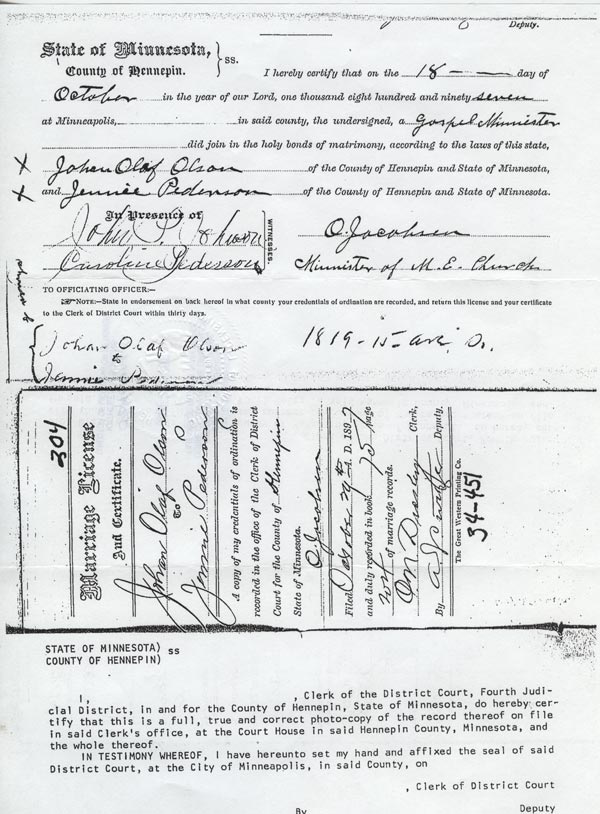 Deputy.
State of Minnesota, } ss.
County of Hennepin.
I hereby certify that on the 18 — day of
October in the year of our Lord, one thousand eight hundred and ninety seven
at Minneapolis, in said county, the undersigned, a Gospel Minister
did join in the holy bonds of matrimony, according to the laws of this state,
x Johan Olaf Olson of the County of Hennepin and State of Minnesota,
x and Jennie Pederson of the County of Hennepin and State of Minnesota.
In Presence of
John
Caroline Pederson
WITNESSES.
O. Jacobsen
Minister of M. E. Church
TO OFFICIATING OFFICER:—
NOTE:—State in endorsement on back hereof in what county your credentials of ordination are recorded, and return this license and your certificate
to the Clerk of District Court within thirty days.
Johan Olaf Olson
to
Jennie Pederson
1819-15 ave. So.
304
Marriage License
And Certificate.
Johan Olaf Olson
To
Jennie Pederson
A copy of my credentials of ordination is
recorded in the office of the Clerk of District
Court for the County of Hennepin
State of Minnesota.
O. Jacobsen
Filed October A. D. 1897
and duly recorded in book 75 page
of marriage records.
Clerk,
By Deputy.
The Great Western Printing Co.
34-451
STATE OF MINNESOTA) ss
COUNTY OF HENNEPIN)
I, , Clerk of the District Court, Fourth Judi-
cial District, in and for the County of Hennepin, State of Minnesota, do hereby cer-
tify that this is a full, true and correct photo-copy of the record thereof on file
in said Clerk's office, at the Court House in said Hennepin County, Minnesota, and
the whole thereof.
IN TESTIMONY WHEREOF, I have hereunto set my hand and affixed the seal of said
District Court, at the City of Minneapolis, in said County, on
, Clerk of District Court
By Deputy